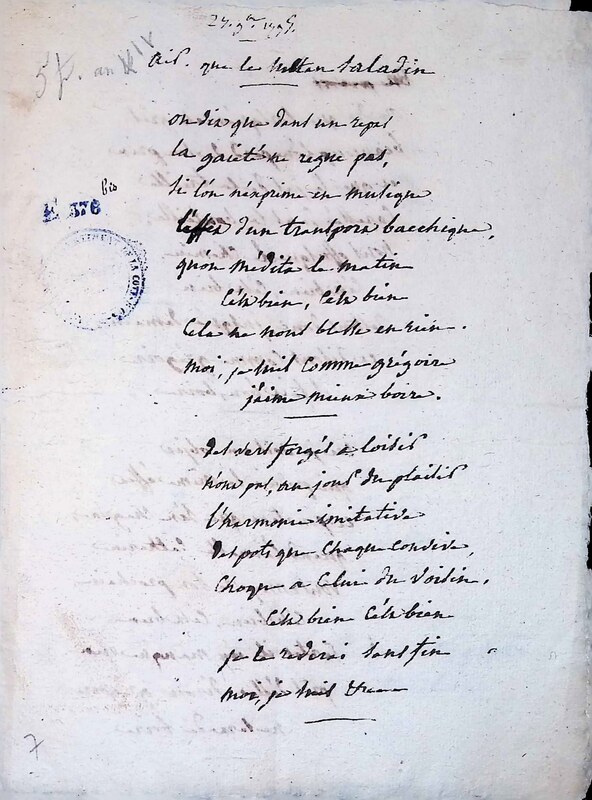 27. 9bre 1795.
5 p. an XIV
air. que le sultan saladin
on dis que dans un repas
la gaieté ne regne pas,
si l'on n'exprime en musique
l'effes d'un transpors bacchique,
qu'on médita le matin
c'ess bien, c'ess bien
cela ne nous blesse en rien.
moi, je suis comme grégoire
j'aime mieux boire.
des vers forgés a loisir
n'ons pas, au jour du plaisir
l'harmonie imitative
des pots que chaque convive,
choque a celui du voisin.
c'ess bien c'ess bien
je le redirai sans fin
moi, je suis &
bis
376
7